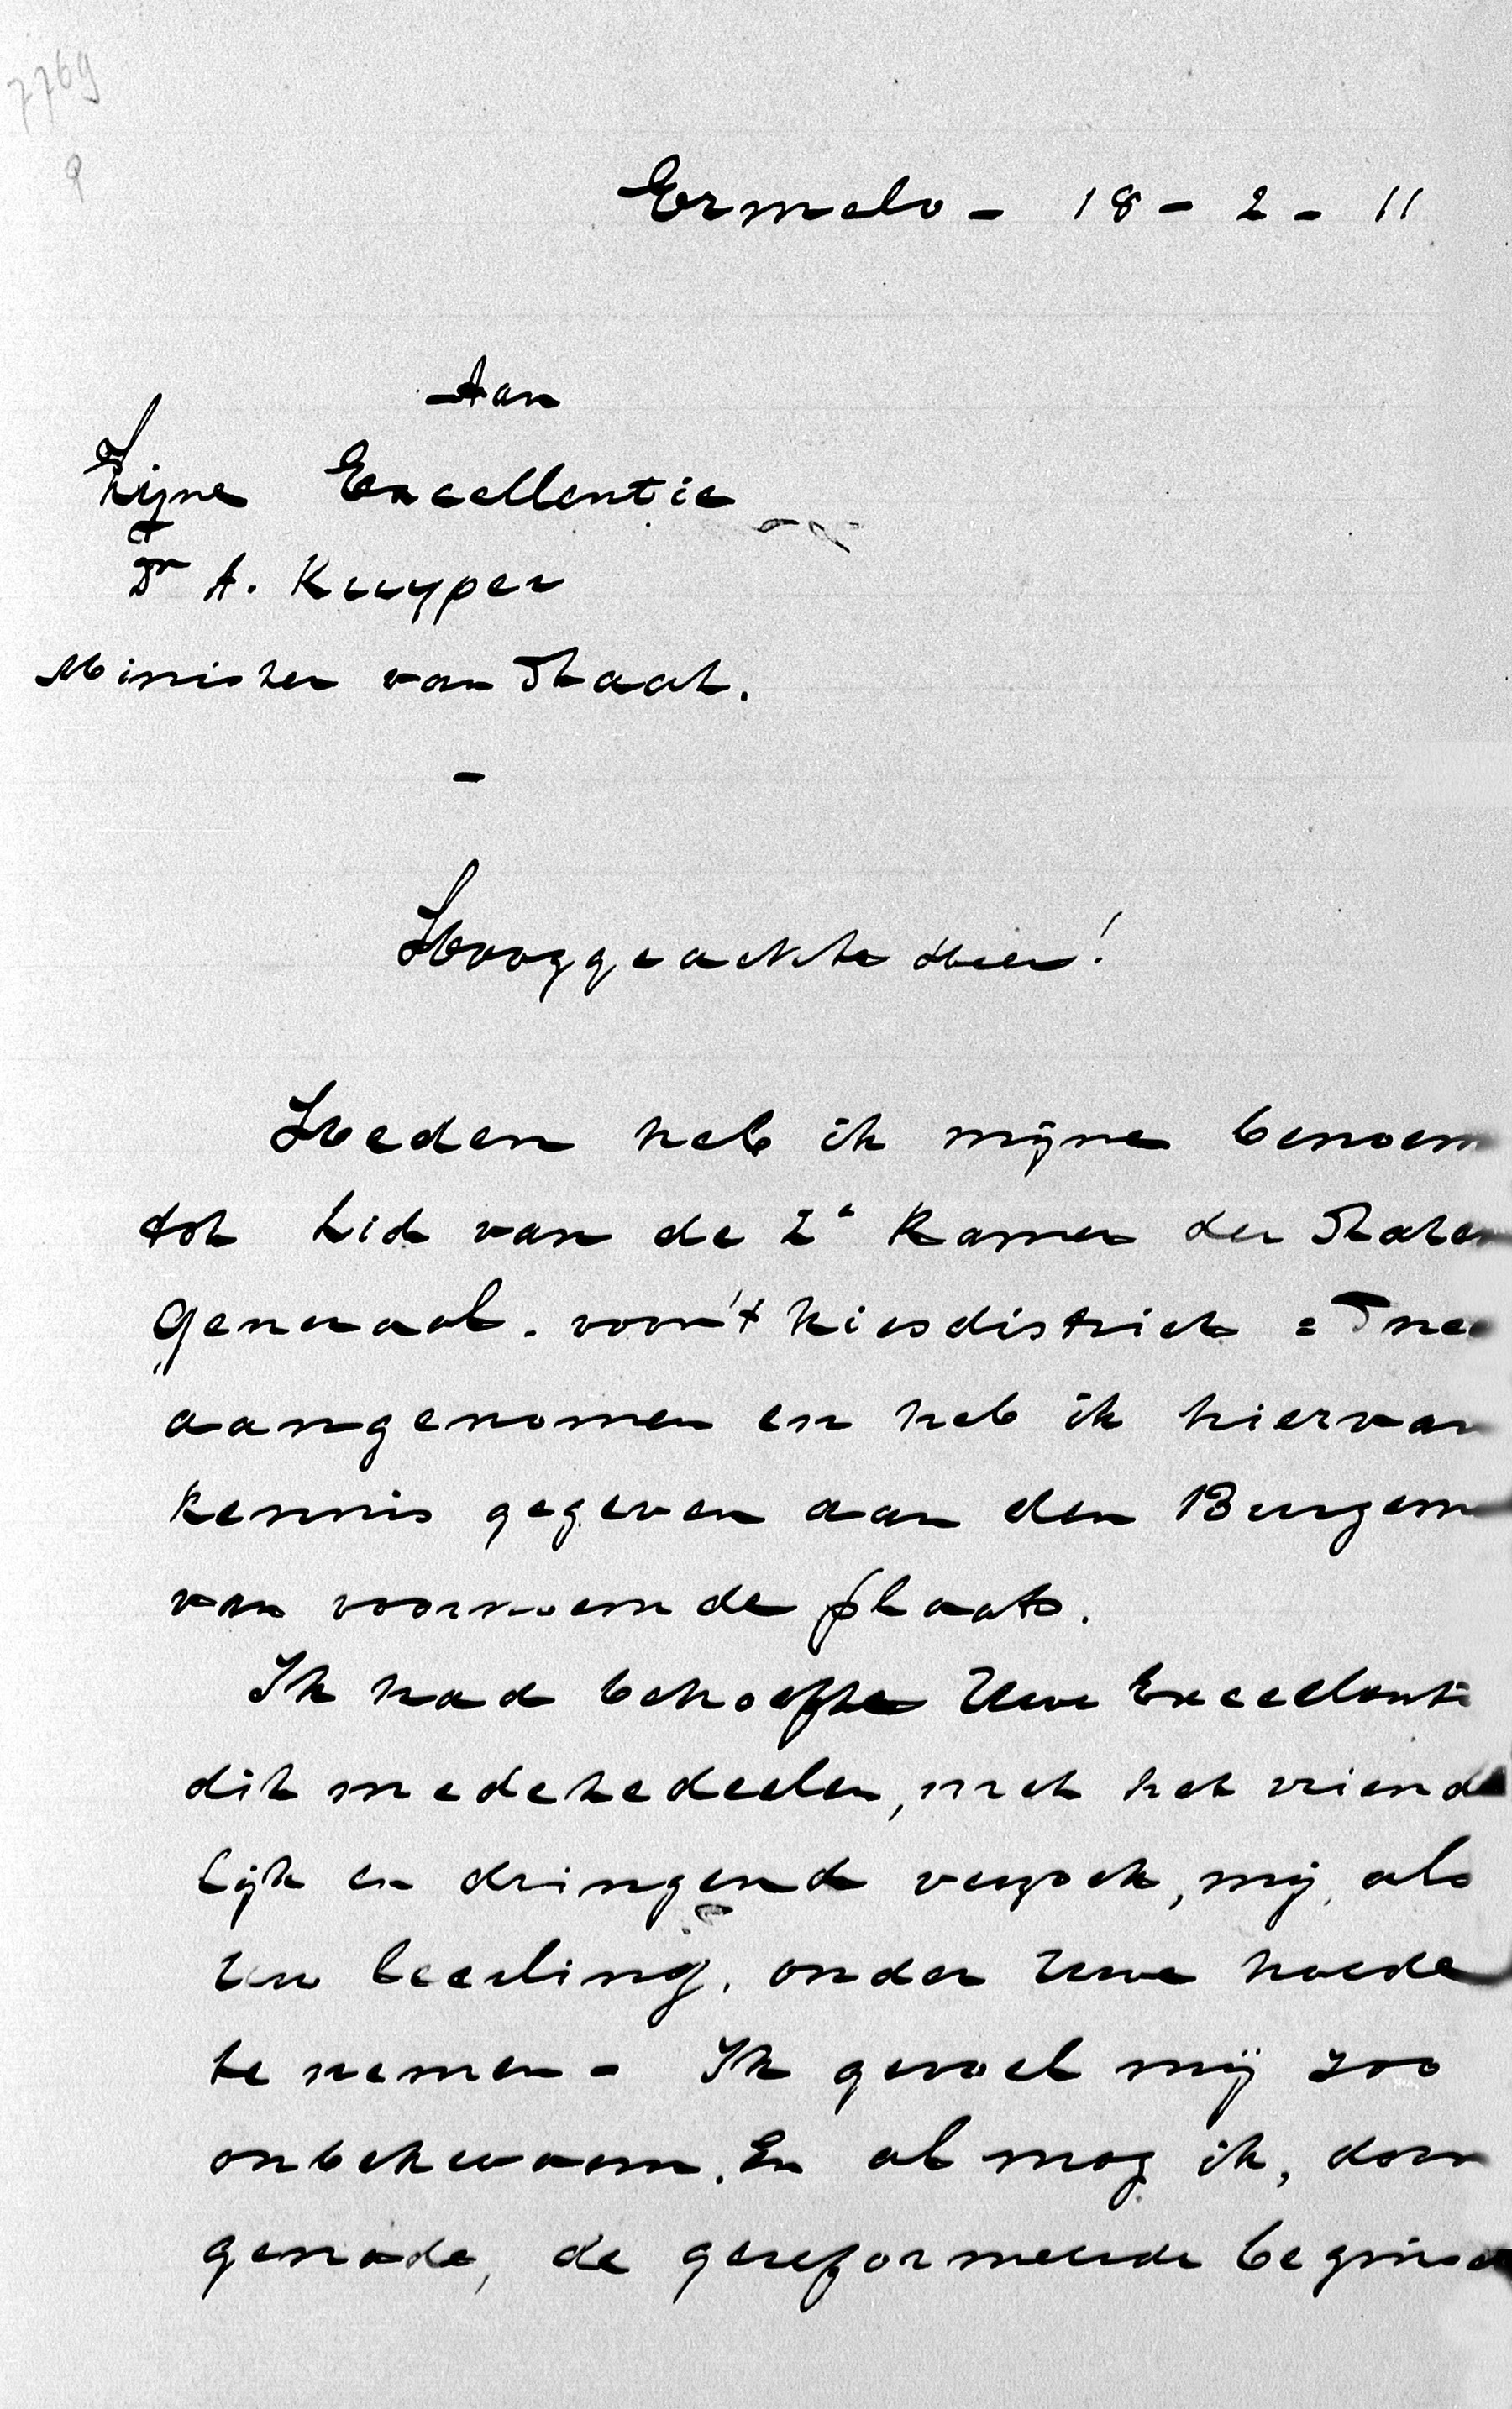 7769
9
Ermelo - 18 - 2 - 11
Aan
Zijne Excellentie
Dr A. Kuyper
Minister van Staat.
-
Hooggeachte Heer!
Heden heb ik mijne benoem
tot Lid van de 2e Kamer der Staten
Generaal. voor 't kiesdistrict = Snee
aangenomen en heb ik hiervan
kennis gegeven aan den Burgem
van voornoemde plaats.
Ik had behoefte Uwe Excellenti
dit medetedeelen, met het vriend
lijk en dringend verzoek, mij, als
Uw leerling, onder Uwe hoede
te nemen - Ik gevoel mij zoo
onbekwaam. En al mog ik, door
genade, de gereformeerde beginse